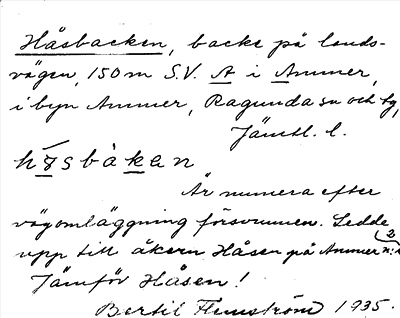 Håsbacken, backe på lands-
vägen, 150 m S.V. A i Ammer,
i byn Ammer, Ragunda sn och tg,
Jämtl. l.
Är numera efter
vägomläggning försvunnen. Ledde
upp till åkern Håsen på Ammer n:r 2
Jämför Håsen!
Bertil Flemström 1935.